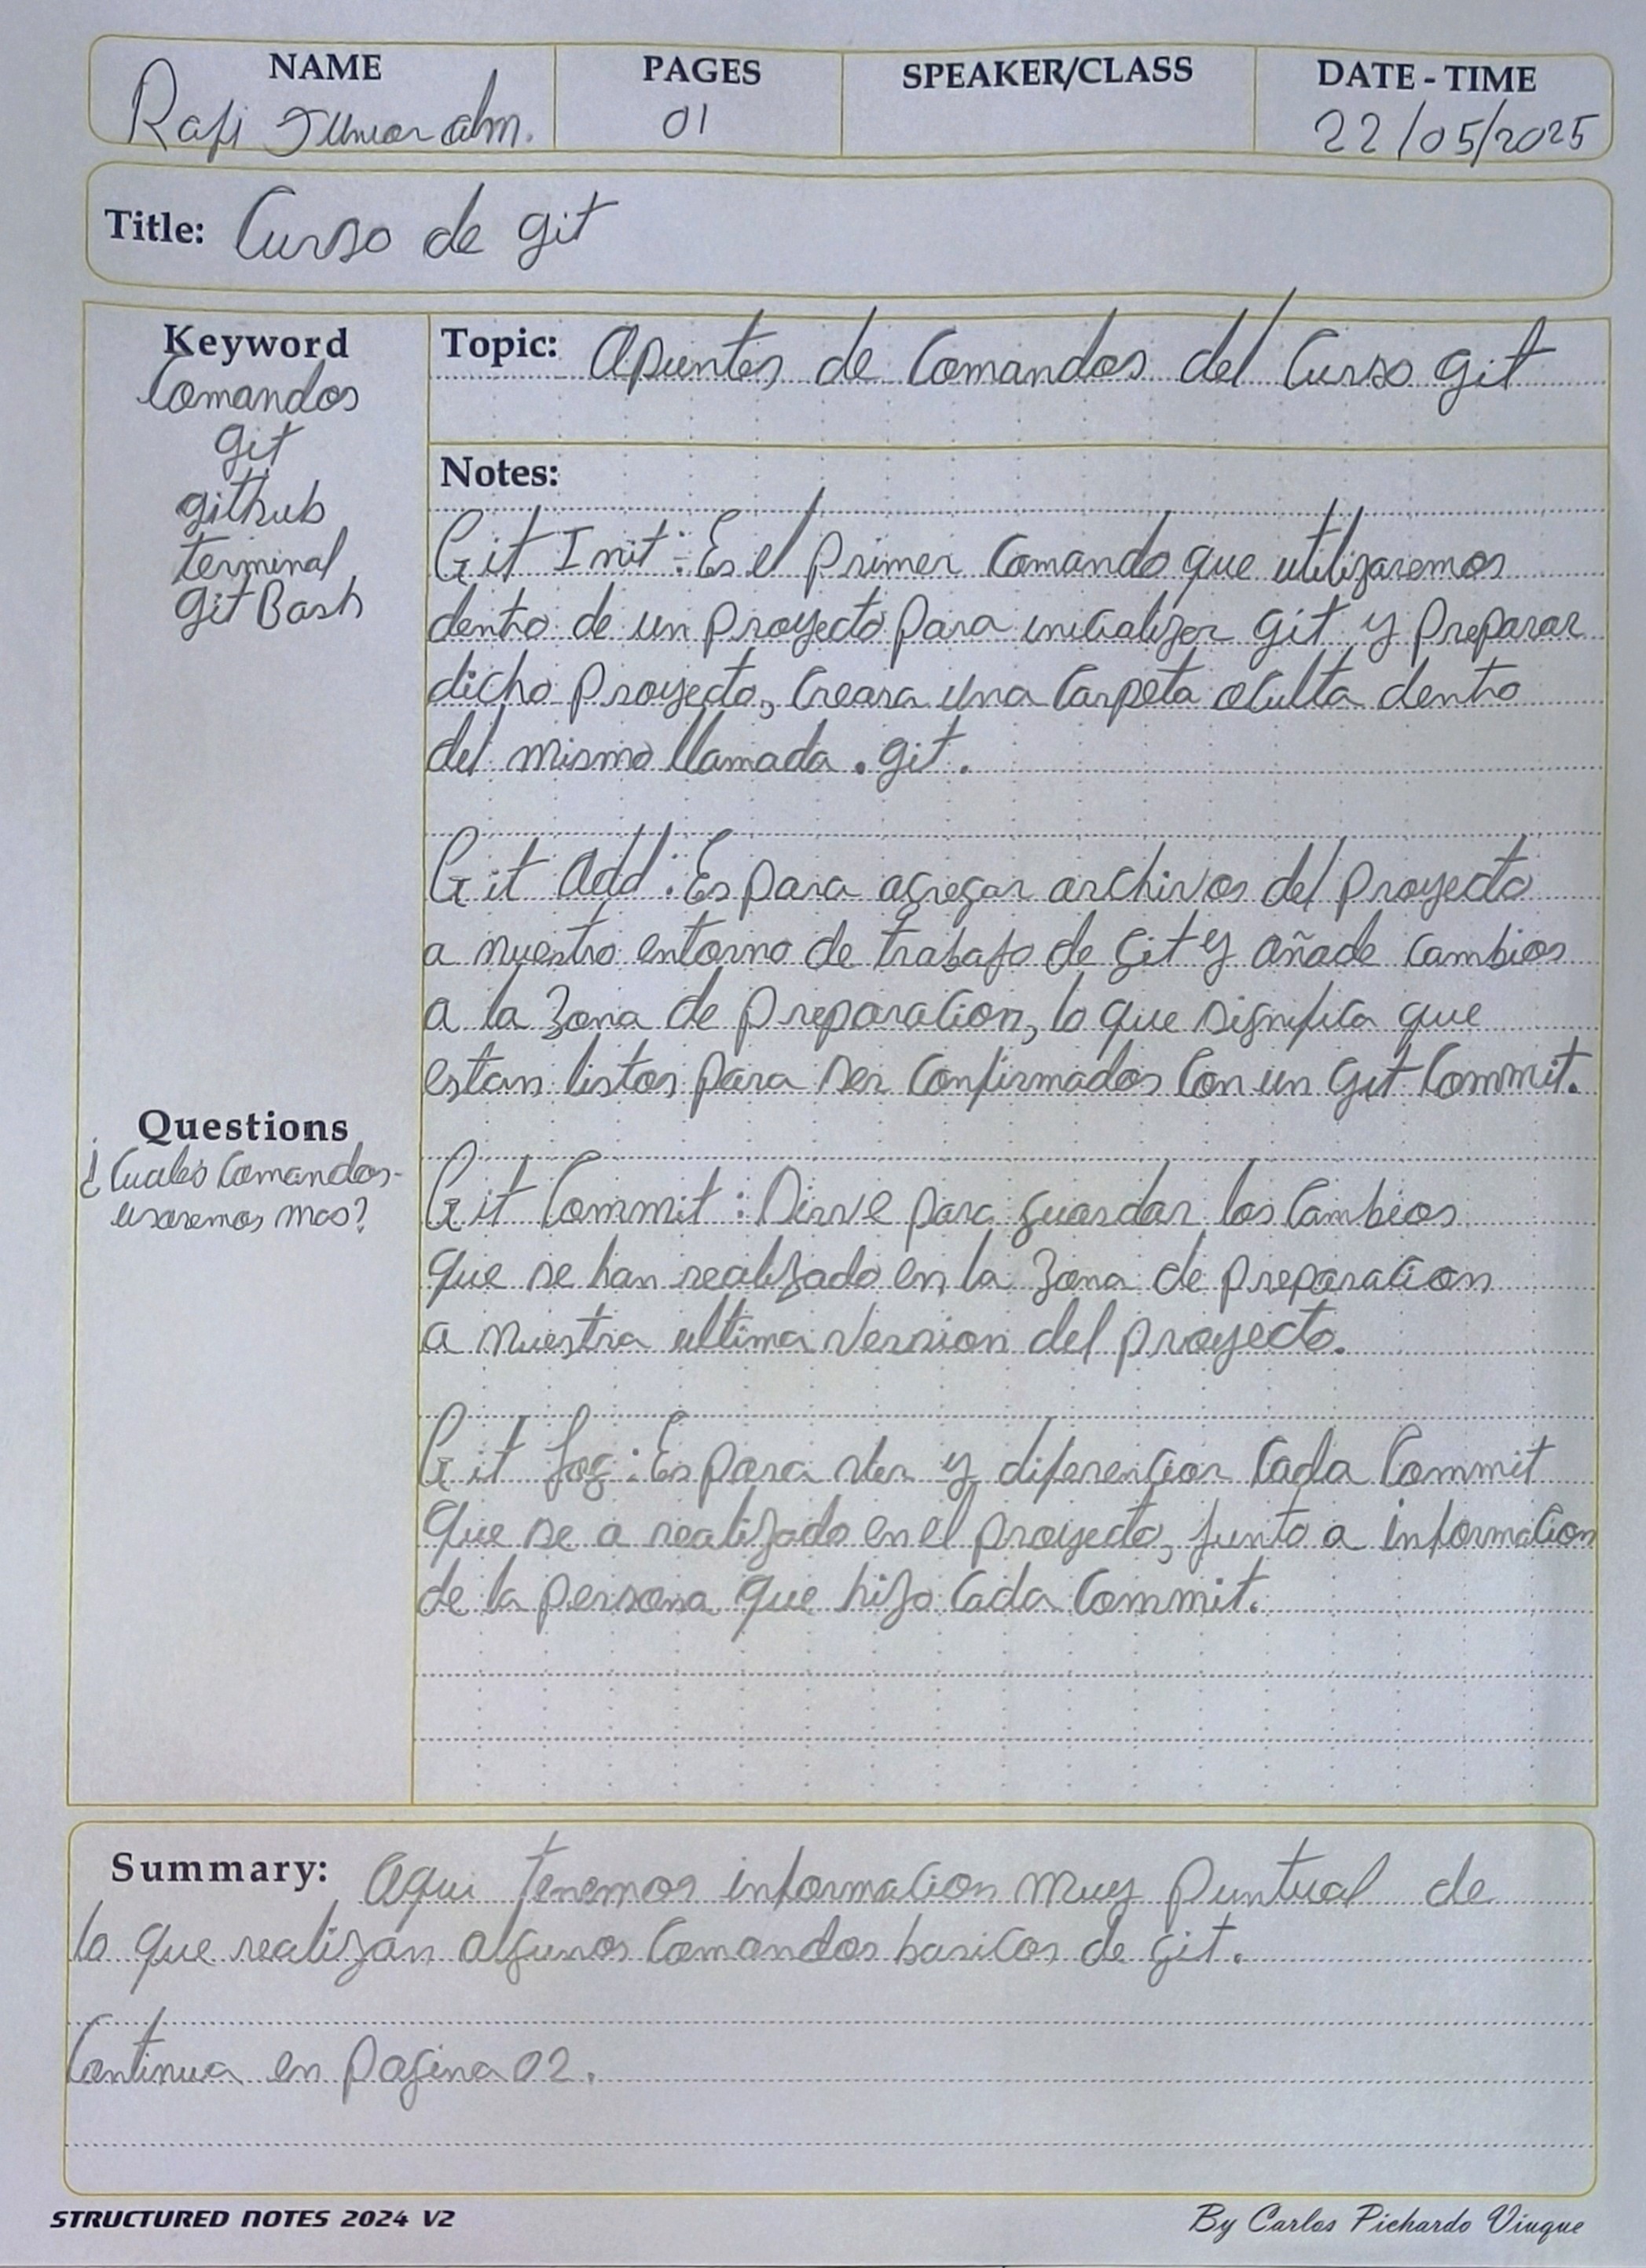 NAME PAGES SPEAKER/CLASS DATE - TIME
Rafi Junior alm. 01 22/05/2025
Title: Curso de git
Keyword
Comandos
git
github
terminal
git Bash
Questions
¿Cuales Comandos
usaremos mas?
Topic: Apuntes de Comandos del Curso git
Notes:
Git Init: Es el Primer Comando que utilizaremos
dentro de un Proyecto para inicializar git y Preparar
dicho Proyecto, Creara una Carpeta oculta dentro
del mismo llamada .git.
Git Add: Es para agregar archivos del Proyecto
a nuestro entorno de trabajo de git y añade cambios
a la Zona de Preparacion, lo que significa que
estan listos para ser Confirmados Con un git Commit.
Git Commit: Sirve para guardar los Cambios
que se han realizado en la Zona de preparacion
a nuestra ultima version del proyecto.
Git Log: Es para ver y diferenciar Cada Commit
que se a realizado en el proyecto, junto a informacion
de la persona que hizo Cada Commit.
Summary: Aqui tenemos informacion muy puntual de
lo que realizan algunos Comandos basicos de git.
Continua en Pagina 02.
STRUCTURED NOTES 2024 V2 By Carlos Pichardo Viuque